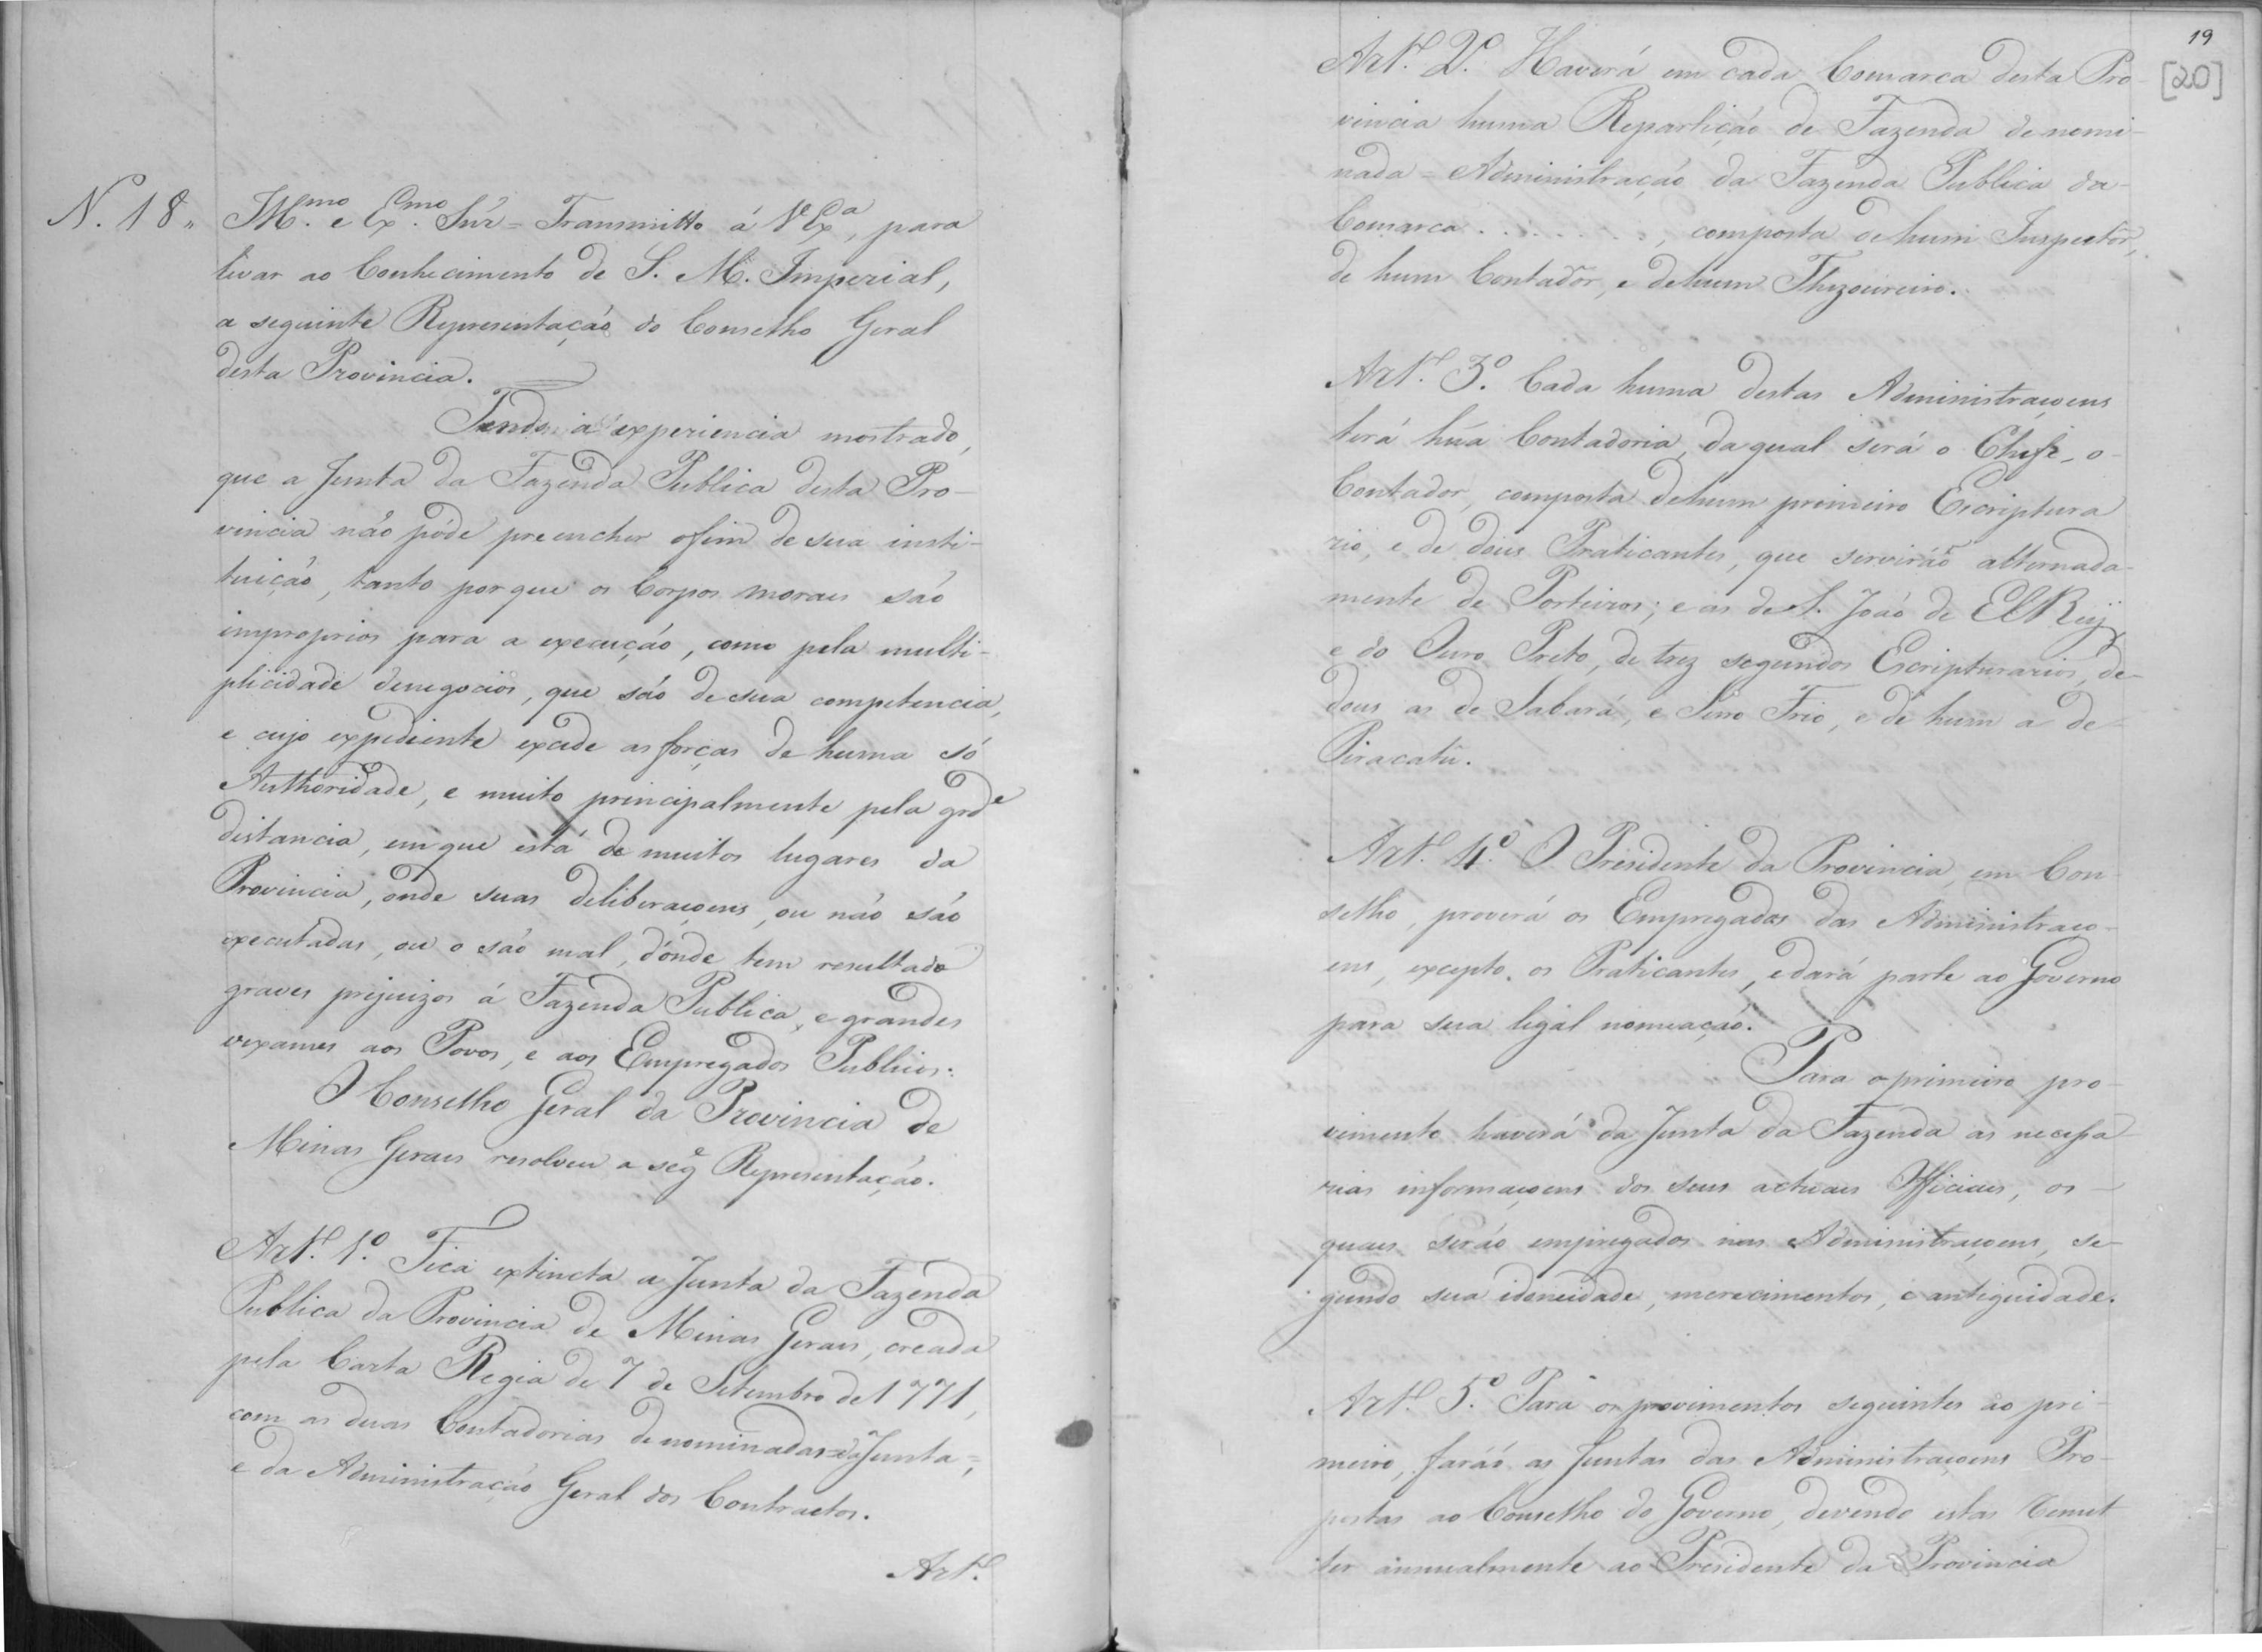 N. 18„
Ill.mo e Ex.mo Sñr = Transmitto á V. Ex.a, para
levar ao Conhecimento de S. M. Imperial,
a seguinte Representação do Conselho Geral
desta Provincia.
Tendo a experiencia mostrado,
que a Junta da Fazenda Publica desta Pro-
vincia não póde preencher o fim de sua insti-
tuição, tanto porque os Corpos moraes são
improprios para a execução, como pela multi-
plicidade denegocios, que são de sua competencia,
e cujo expediente excede as forças de huma só
Authoridade, e muito principalmente pela grde
distancia, em que está de muitos lugares da
Provincia, onde suas deliberaçoens, ou não são
executadas, ou o são mal, d'onde tem resultado
graves prejuizos á Fazenda Publica, e grandes
vexames aos Povos, e aos Empregados Publicos:
O Conselho Geral da Provincia de
Minas Geraes resolveu a seg.e Representação.
Art.º 1.º Fica extincta a Junta da Fazenda
Publica da Provincia de Minas Geraes, creada
pela Carta Regia de 7 de Setembro de 1771,
com as duas Contadorias denominadas = da Junta =,
e da Administração Geral dos Contractos.
Art.º
19
[20]
Art.º 2.º Haverá em cada Comarca desta Pro
vincia huma Repartição de Fazenda denomi-
nada = Administração da Fazenda Publica da
Comarca . . . . . . . ., composta de hum Inspector,
de hum Contador, e dehum Thezoureiro.
Art.º 3.º Cada huma destas Administraçoens
terá hũa Contadoria, da qual será o Chefe o
Contador, composta dehum primeiro Escriptura
rio, e de dous Praticantes, que servirão alternada-
mente de Porteiros; e as de S. João de ElRey
e do Ouro Preto, de trez segundos Escripturarios, de
dous as de Sabará, e Serro Frio, e de hum a de
Piracatú.
Art.º 4.º O Presidente da Provincia, em Con
selho, proverá os Empregados das Administraço-
ens, excepto os Praticantes, e dará parte ao Governo
para sua legal nomeação.
Para o primeiro pro-
vimento haverá da Junta da Fazenda as necessa
rias informaçoens dos seus actuaes Officiaes, os
quaes serão empregados nas Administraçoens, se-
gundo sua idoneidade, merecimentos, e antiguidade.
Art.º 5.º Para os provimentos seguintes ao pri-
meiro, farão as Juntas das Administraçoens Pro-
postas ao Conselho do Governo, devendo estas remet
ter annualmente ao Presidente da Provincia